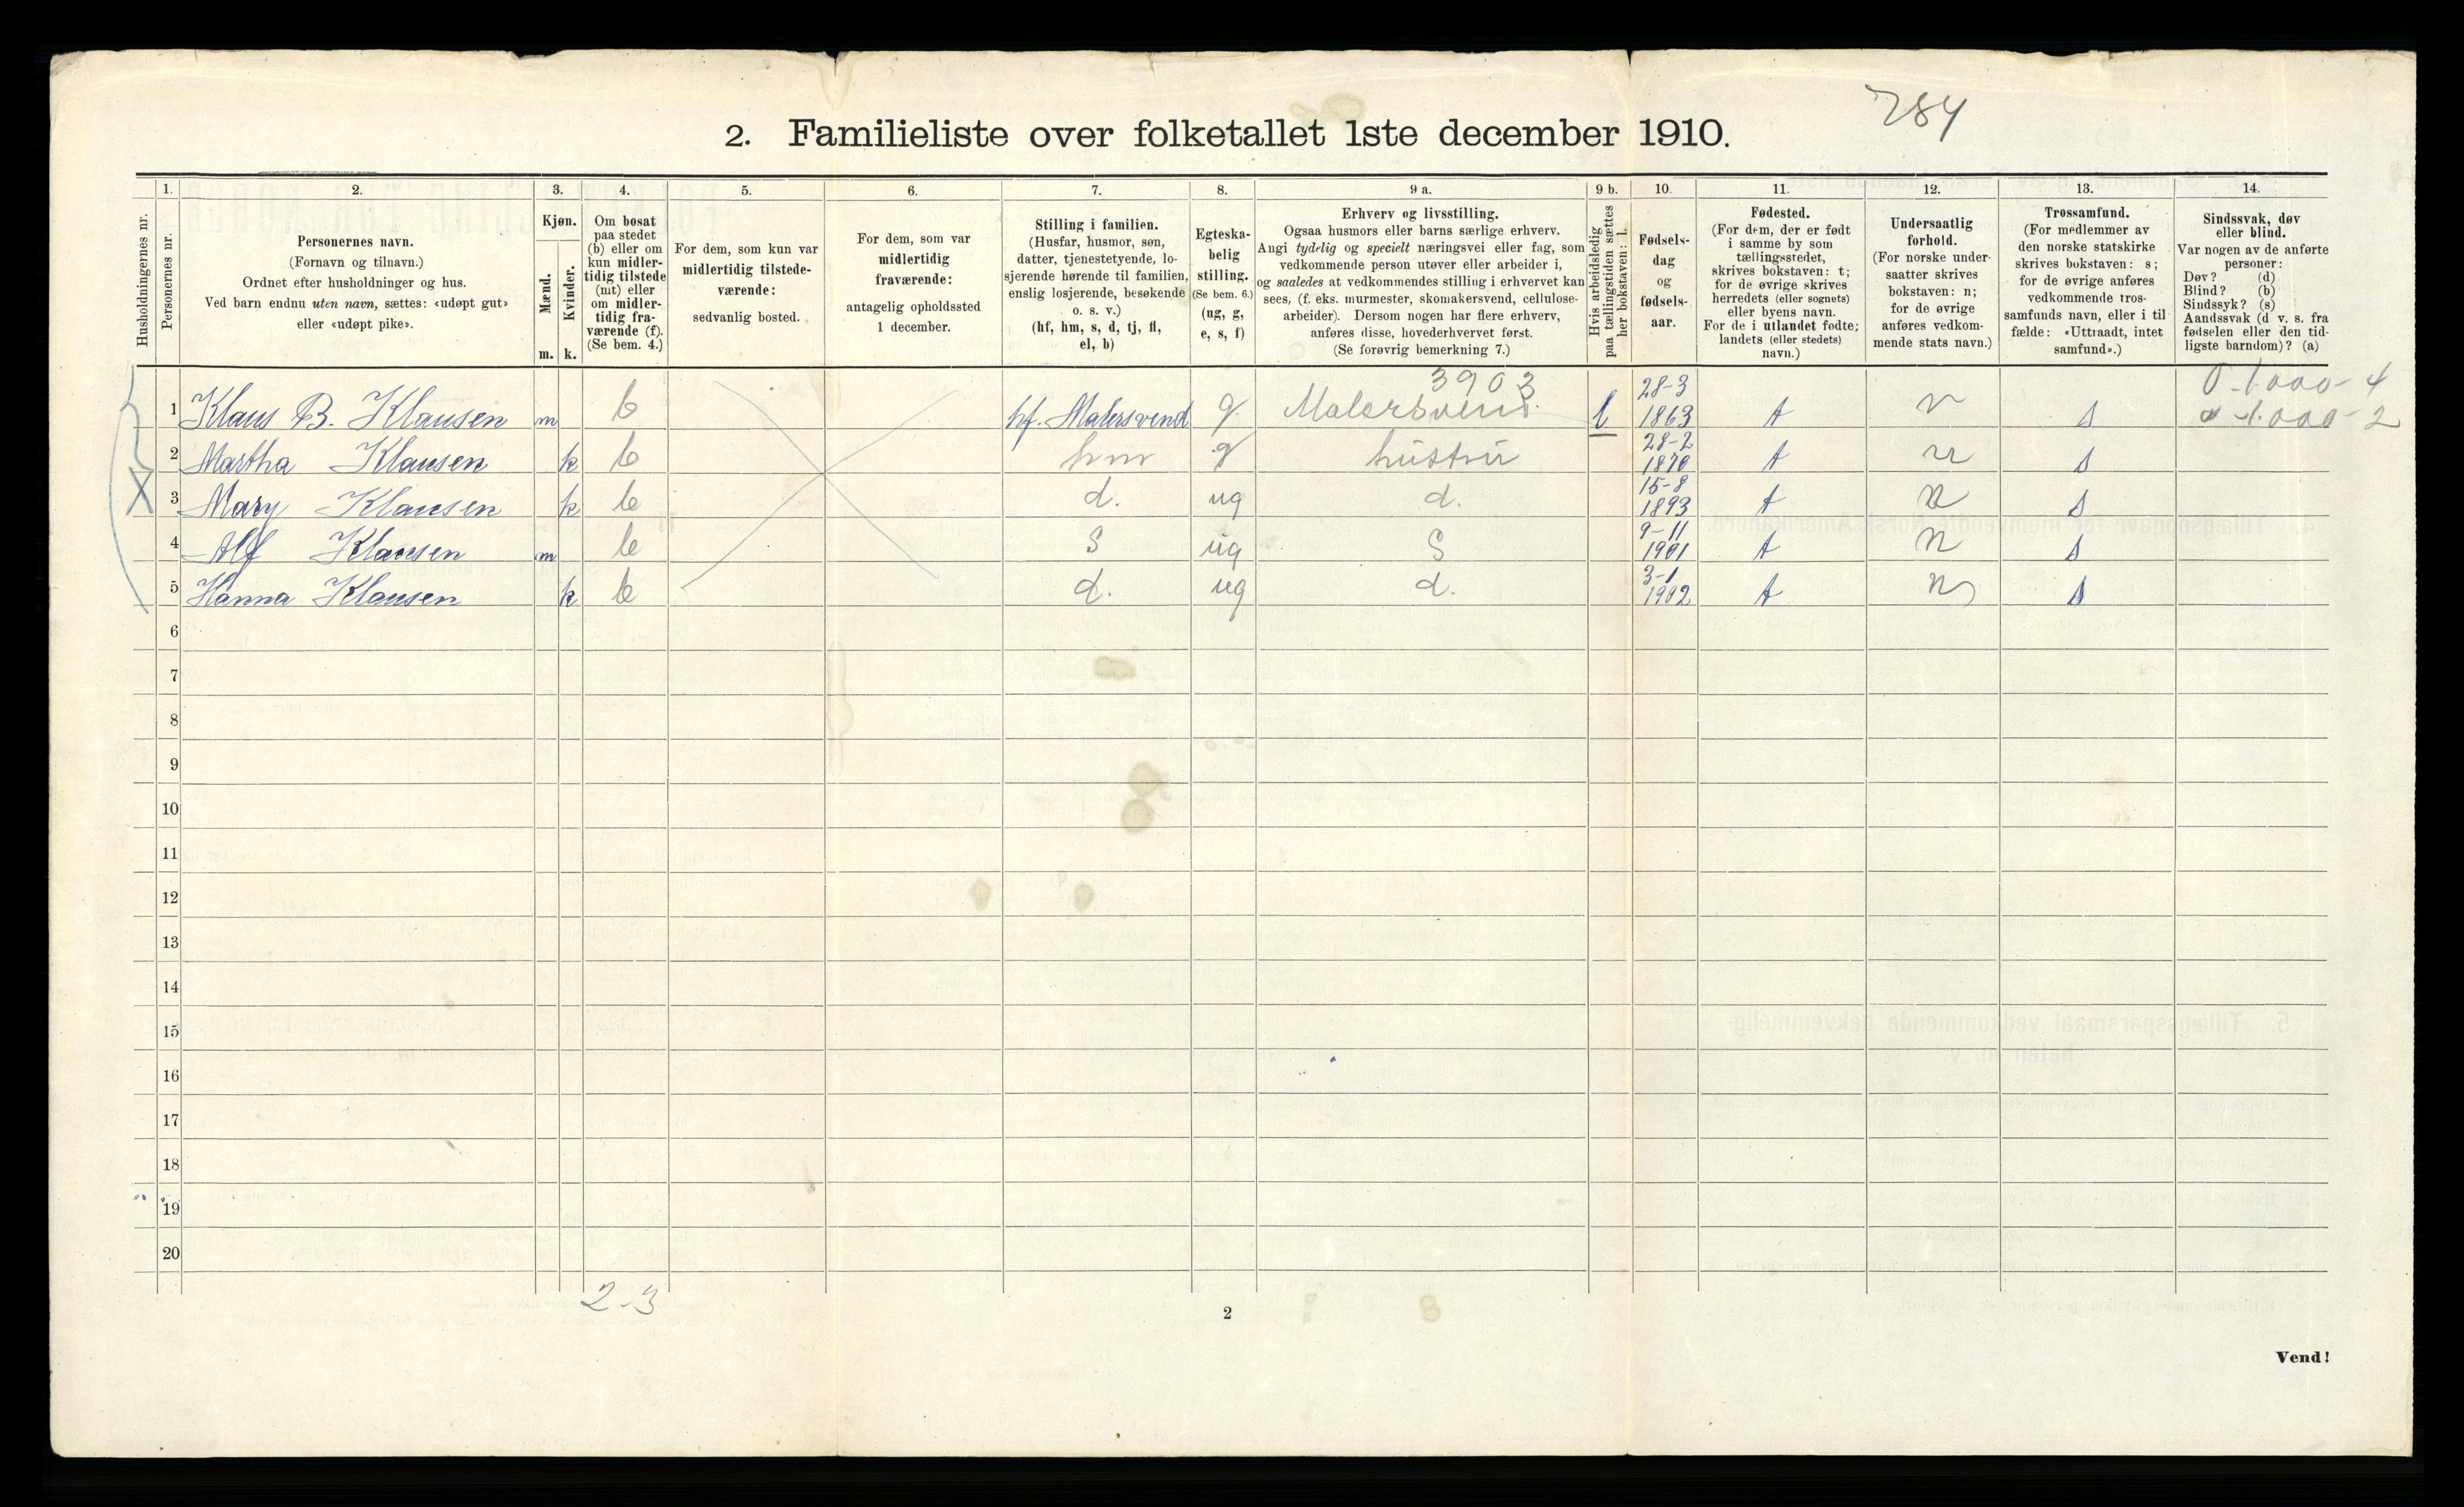 784
2. Familieliste over folketallet 1ste december 1910.
Husholdningernes nr.
1.
Personernes nr.
2.
Personernes navn.
(Fornavn og tilnavn.)
Ordnet efter husholdninger og hus.
Ved barn endnu uten navn, sættes: «udøpt gut»
eller «udøpt pike».
3.
Kjøn.
Mænd.
m.
Kvinder.
k.
4.
Om bosat
paa stedet
(b) eller om
kun midler-
tidig tilstede
(mt) eller
om midler-
tidig fra-
værende (f).
(Se bem. 4.)
5.
For dem, som kun var
midlertidig tilstede-
værende:
sedvanlig bosted.
6.
For dem, som var
midlertidig
fraværende:
antagelig opholdssted
1 december.
7.
Stilling i familien.
(Husfar, husmor, søn,
datter, tjenestetyende, lo-
sjerende hørende til familien,
enslig losjerende, besøkende
o. s. v.)
(hf, hm, s, d, tj, fl,
el, b)
8.
Egteska-
belig
stilling.
(Se bem. 6.)
(ug, g,
e, s, f)
9 a.
Erhverv og livsstilling.
Ogsaa husmors eller barns særlige erhverv.
Angi tydelig og specielt næringsvei eller fag, som
vedkommende person utøver eller arbeider i,
og saaledes at vedkommendes stilling i erhvervet kan
sees, (f. eks. murmester, skomakersvend, cellulose-
arbeider). Dersom nogen har flere erhverv,
anføres disse, hovederhvervet først.
(Se forøvrig bemerkning 7.)
9 b.
Hvis arbeidsledig
paa tællingstiden sættes
her bokstaven: l.
10.
Fødsels-
dag
og
fødsels-
aar.
11.
Fødested.
(For dem, der er født
i samme by som
tællingsstedet,
skrives bokstaven: t;
for de øvrige skrives
herredets (eller sognets)
eller byens navn.
For de i utlandet fødte;
landets (eller stedets)
navn.)
12.
Undersaatlig
forhold.
(For norske under-
saatter skrives
bokstaven: n;
for de øvrige
anføres vedkom-
mende stats navn.)
13.
Trossamfund.
(For medlemmer av
den norske statskirke
skrives bokstaven: s;
for de øvrige anføres
vedkommende tros-
samfunds navn, eller i til-
fælde: «Uttraadt, intet
samfund».)
14.
Sindssvak, døv
eller blind.
Var nogen av de anførte
personer:
Døv? (d)
Blind? (b)
Sindssyk? (s)
Aandssvak (d v. s. fra
fødselen eller den tid-
ligste barndom)? (a)
3903
0-1.000-4
1 Klaus B. Klausen m b hf. Malersvend g. Malersvend. l 28-3 1863 t n s
2 Martha Klausen k b hm g hustru 28-2 1870 t n s
X
3 Mary Klausen k b d. ug d. 15-8 1893 t n s
4 Alf Klausen m b S ug S 9-11 1901 t n s
5 Hanna Klausen k b d. ug d. 3-1 1902 t n s
6
7
8
9
10
11
12
13
14
15
16
17
18
19
20
2-3
2
Vend!